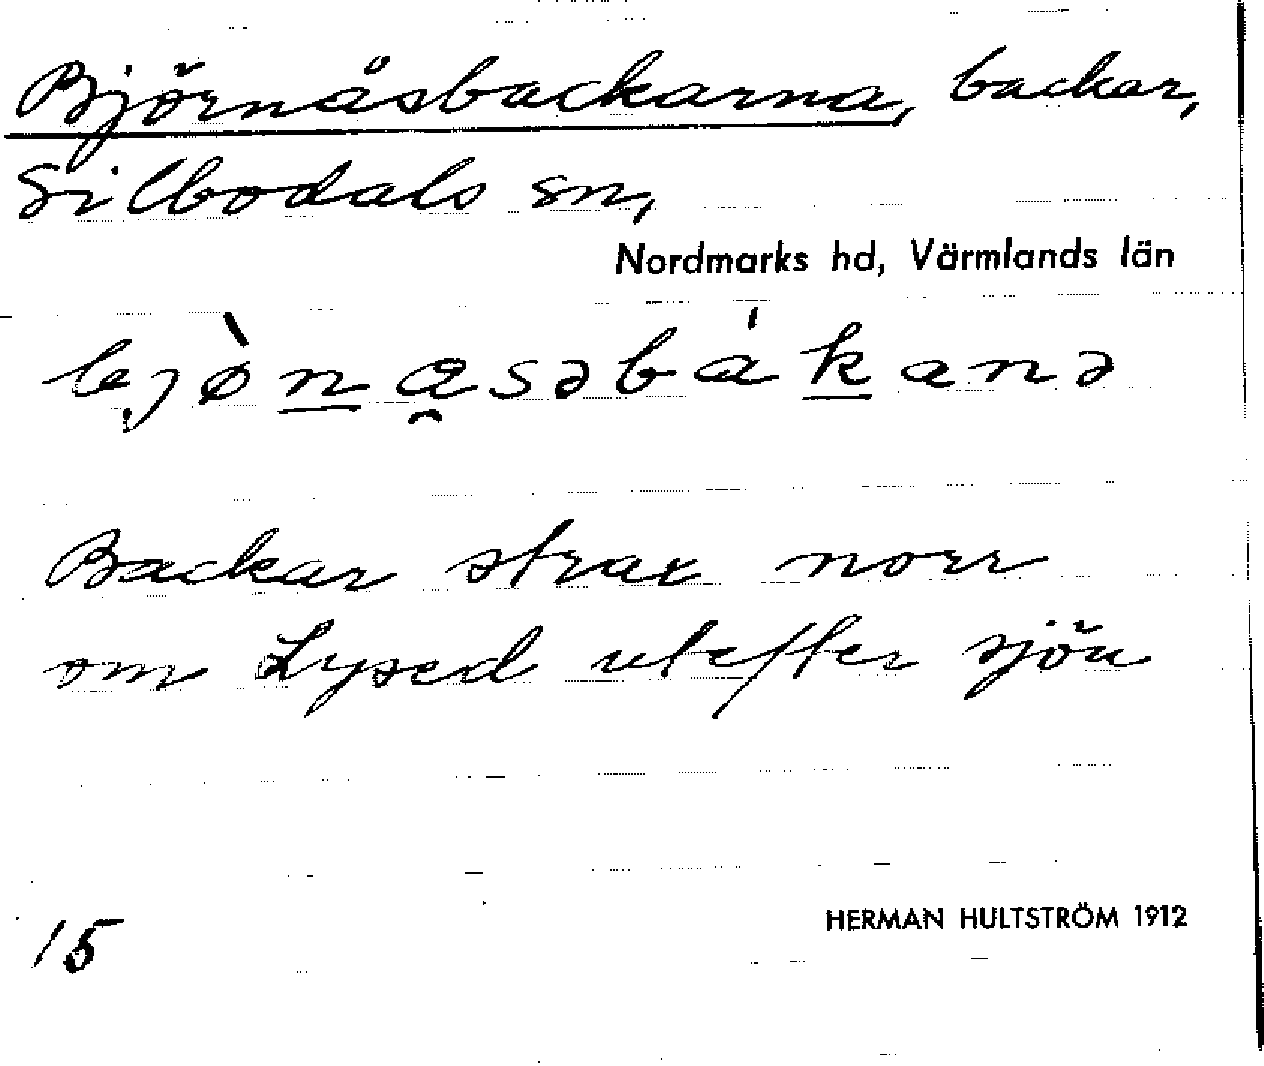 Björnåsbackarna, backar,
Silbodals sn,
Nordmarks hd, Värmlands län
bjø̀nasəbákanə
Backar strax norr
om Lysed utefter sjön
15
HERMAN HULTSTRÖM 1912